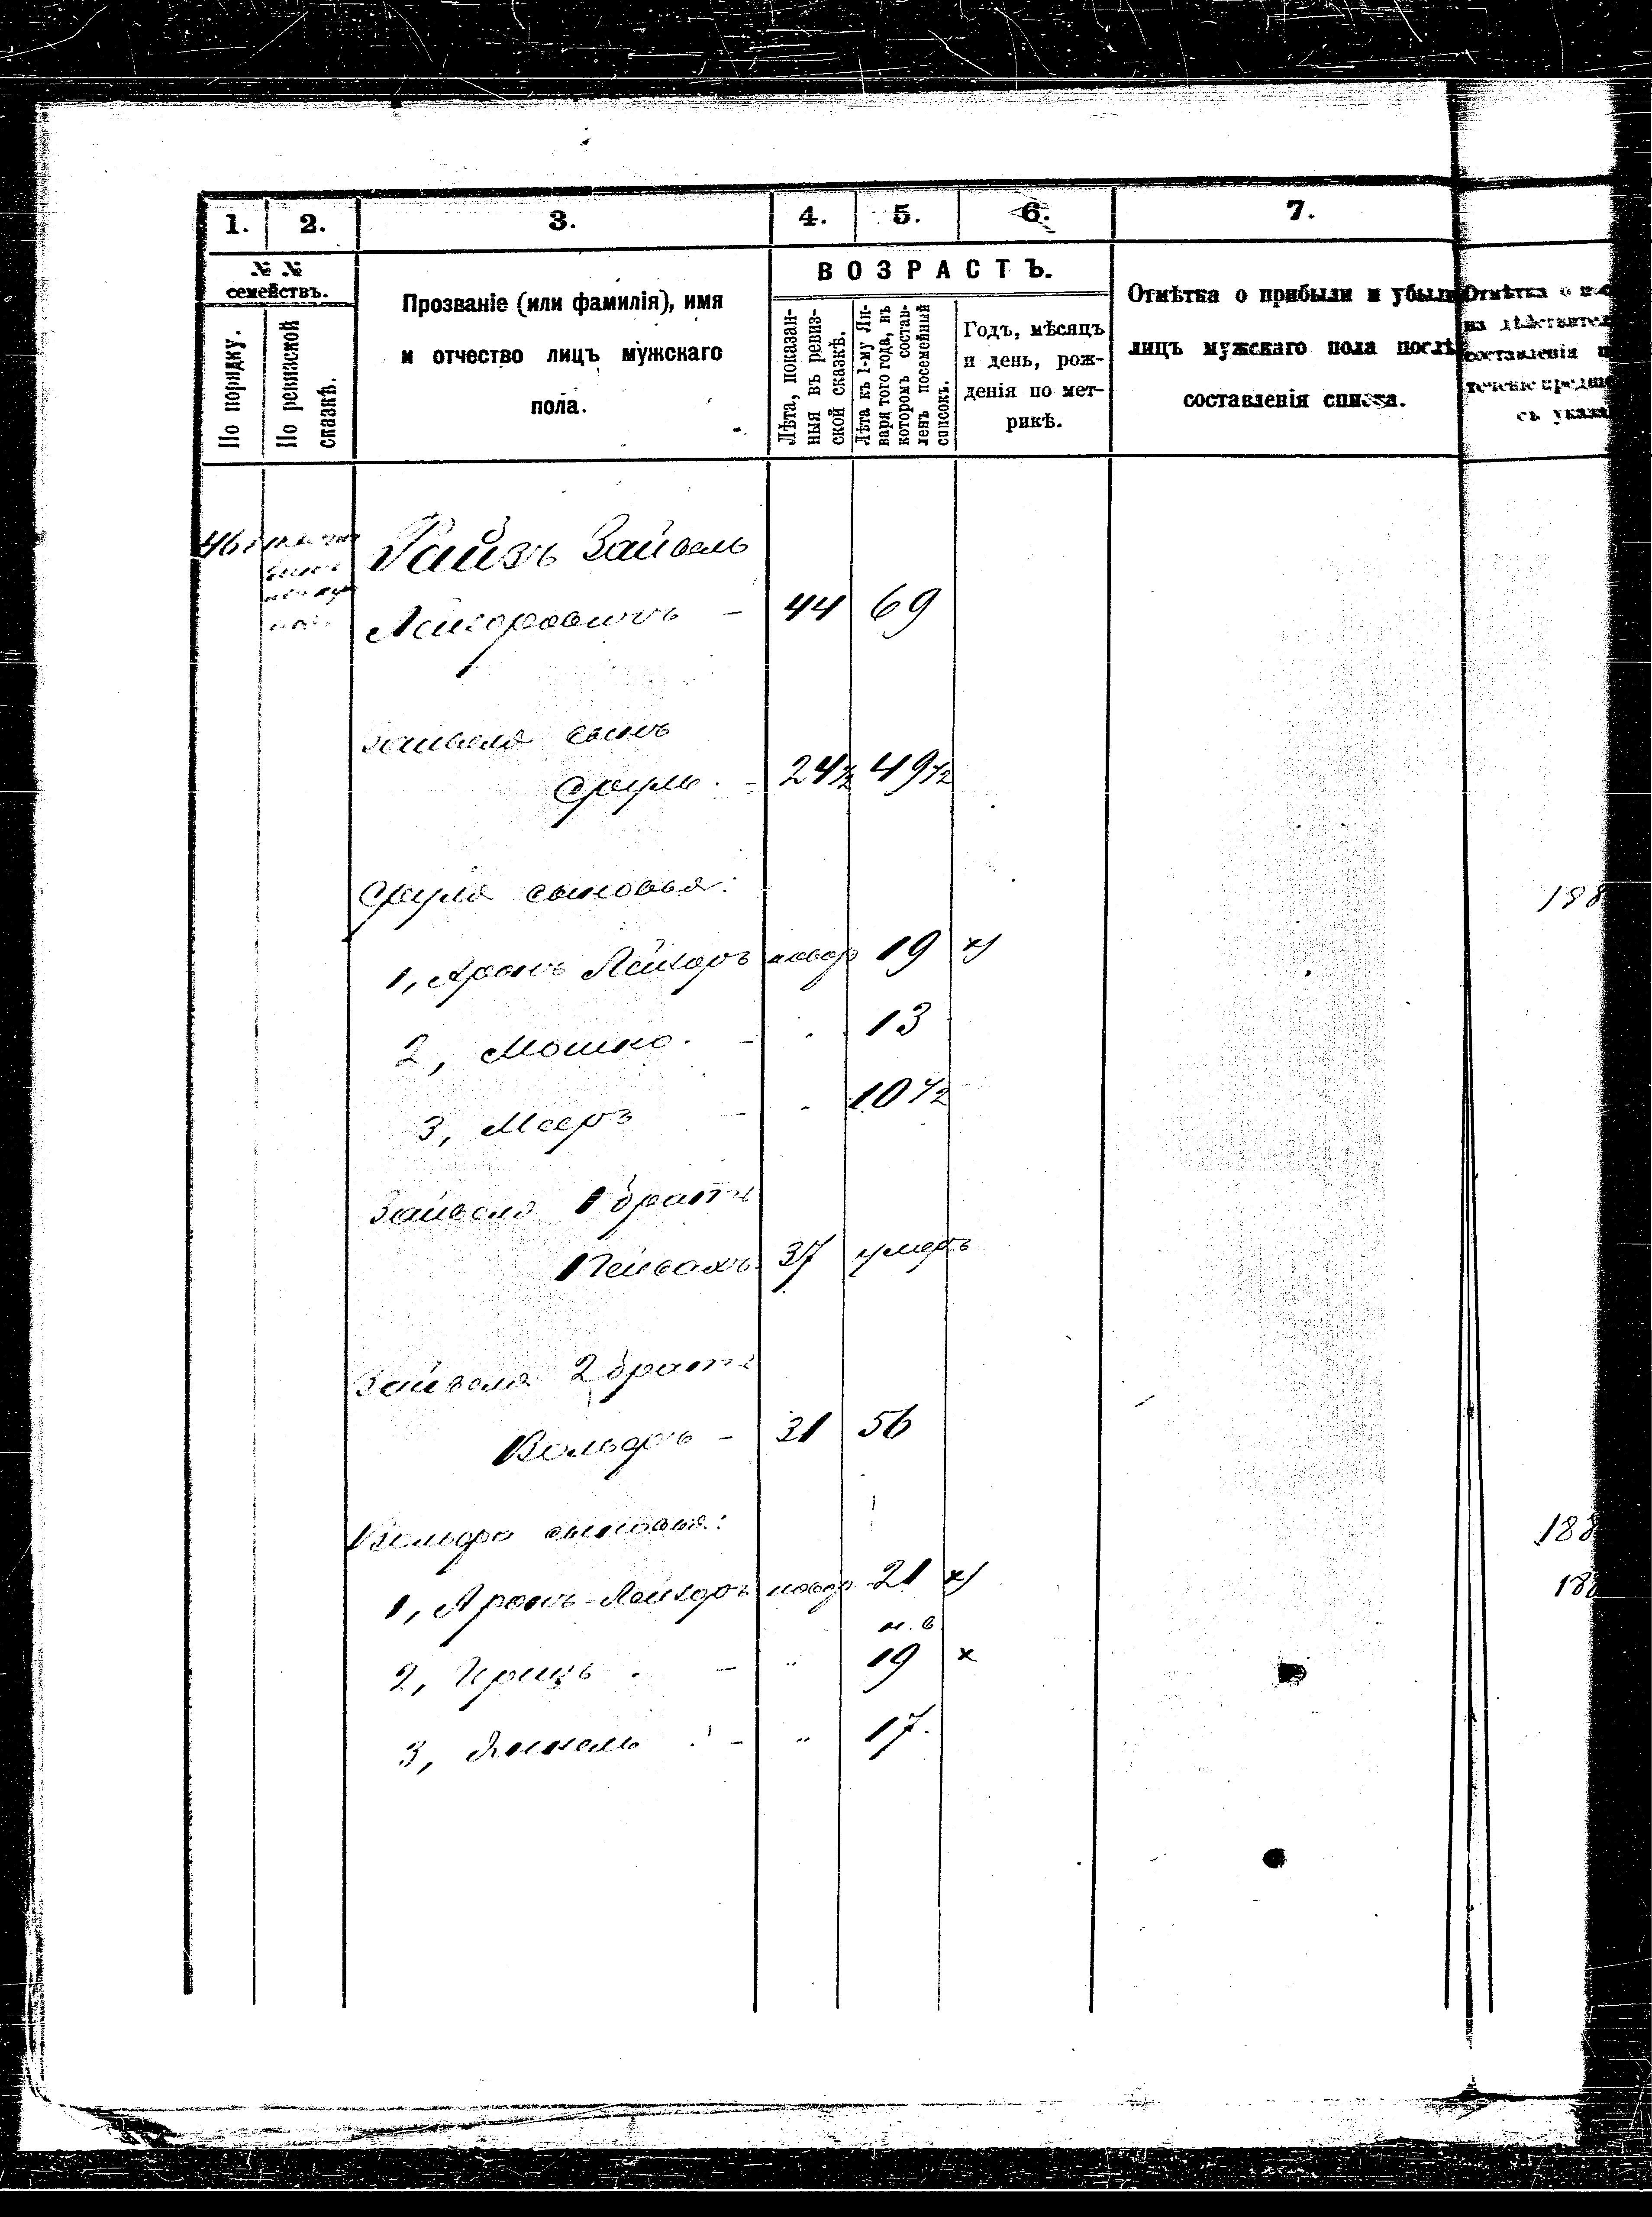 1. 2. 3. 4. 5. 6. 7.
№ №
семействъ.
По порядку.
По ревизской
сказкѣ.
Прозваніе (или фамилія), имя
и отчество лицъ мужскаго
пола.
ВОЗРАСТЪ.
Лѣта, показан-
ныя въ ревиз-
ской сказкѣ.
Лѣта къ 1-му Ян-
варя того года, въ
которомъ состав-
ленъ посемейный
списокъ.
Годъ, мѣсяцъ
и день, рож-
денія по мет-
рикѣ.
Отмѣтка о прибыли и убыли
лицъ мужскаго пола послѣ
составленія списка.
Отмѣтка о
на
составленія
течение
съ указа
Райзъ Зайвель
Лейзоровичъ - 44 69
Зайвеля сынъ
Сруль - 24 1/2 49 1/2
Сруля сыновья: 188
1, Аронъ Лейзоръ новор 19 х)
2, Мошко. - 13
3, Мееръ - 10 1/2
Зайвеля 1 братъ
Пейсахъ 37 умеръ
Зайвеля 2 братъ
Вольфъ - 31 56
Вольфа сыновья: 188
1, Аронъ-Лейзоръ новор 21 х) 188
н. в.
2, Ицикъ. - " 19 х
3, - " 17.